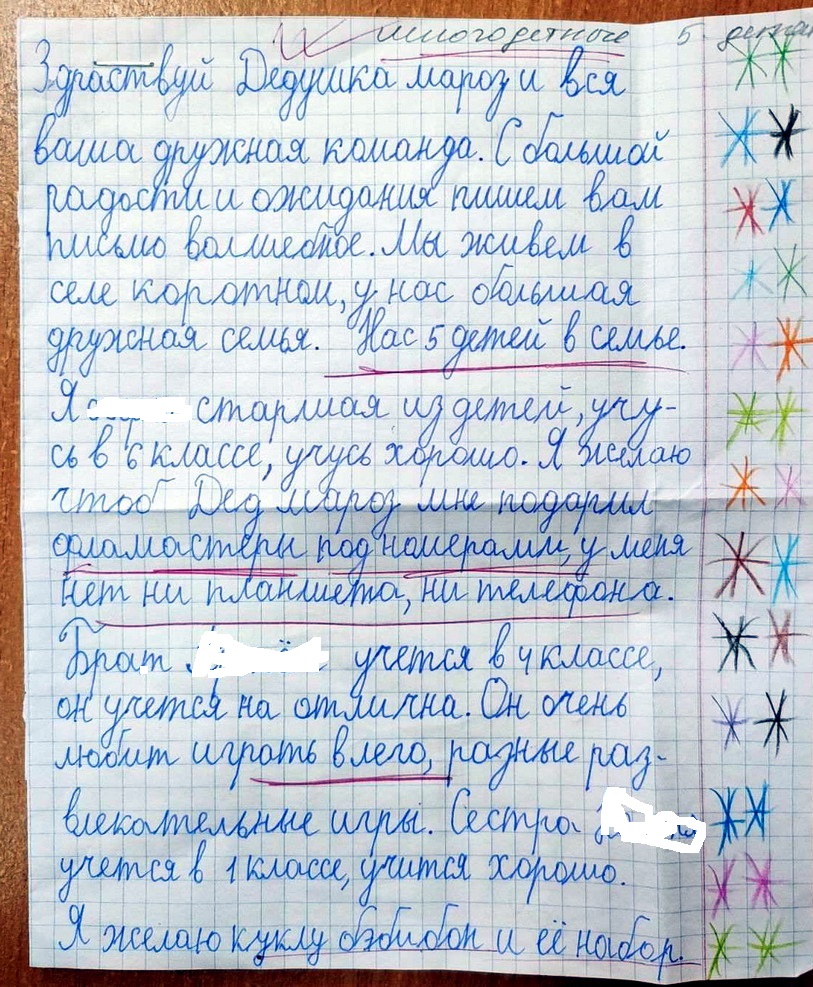 многодетные 5 детей
Здраствуй Дедушка мароз и вся
ваша дружная команда. С большой
радости и ожидания пишем вам
письмо волшебное. Мы живем в
селе коротном, у нас большая
дружная семья. Нас 5 детей в семье.
Я старшая из детей, учу-
сь в 6 классе, учусь хорошо. Я желаю
чтоб Дед мароз мне подарил
фламастеры под номерами, у меня
нет ни планшета, ни телефона.
Брат учется в 4 классе,
он учется на отлична. Он очень
любит играть в лего, разные раз-
влекательные игры. Сестра
учется в 1 классе, учится хорошо.
Я желаю куклу бэбибон и её набор.